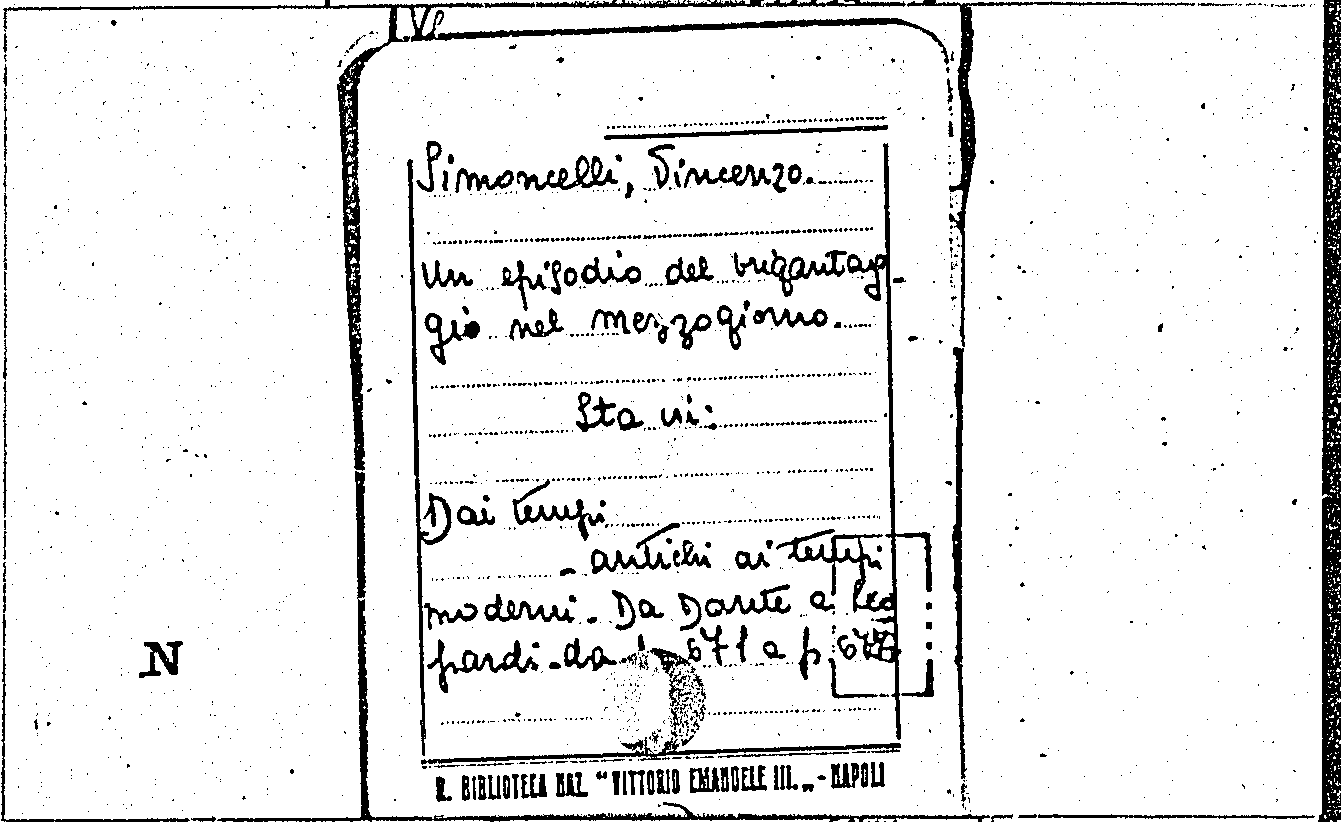 Simoncelli, Vincenzo.
Un episodio del brigantag-
gio nel mezzogiorno.
Sta in:
Dai tempi
- antichi ai tempi
moderni. Da Dante a Leo
pardi. da p. 671 a p.
N
R. BIBLIOTECA NAZ. "VITTORIO EMANUELE III.„ - NAPOLI